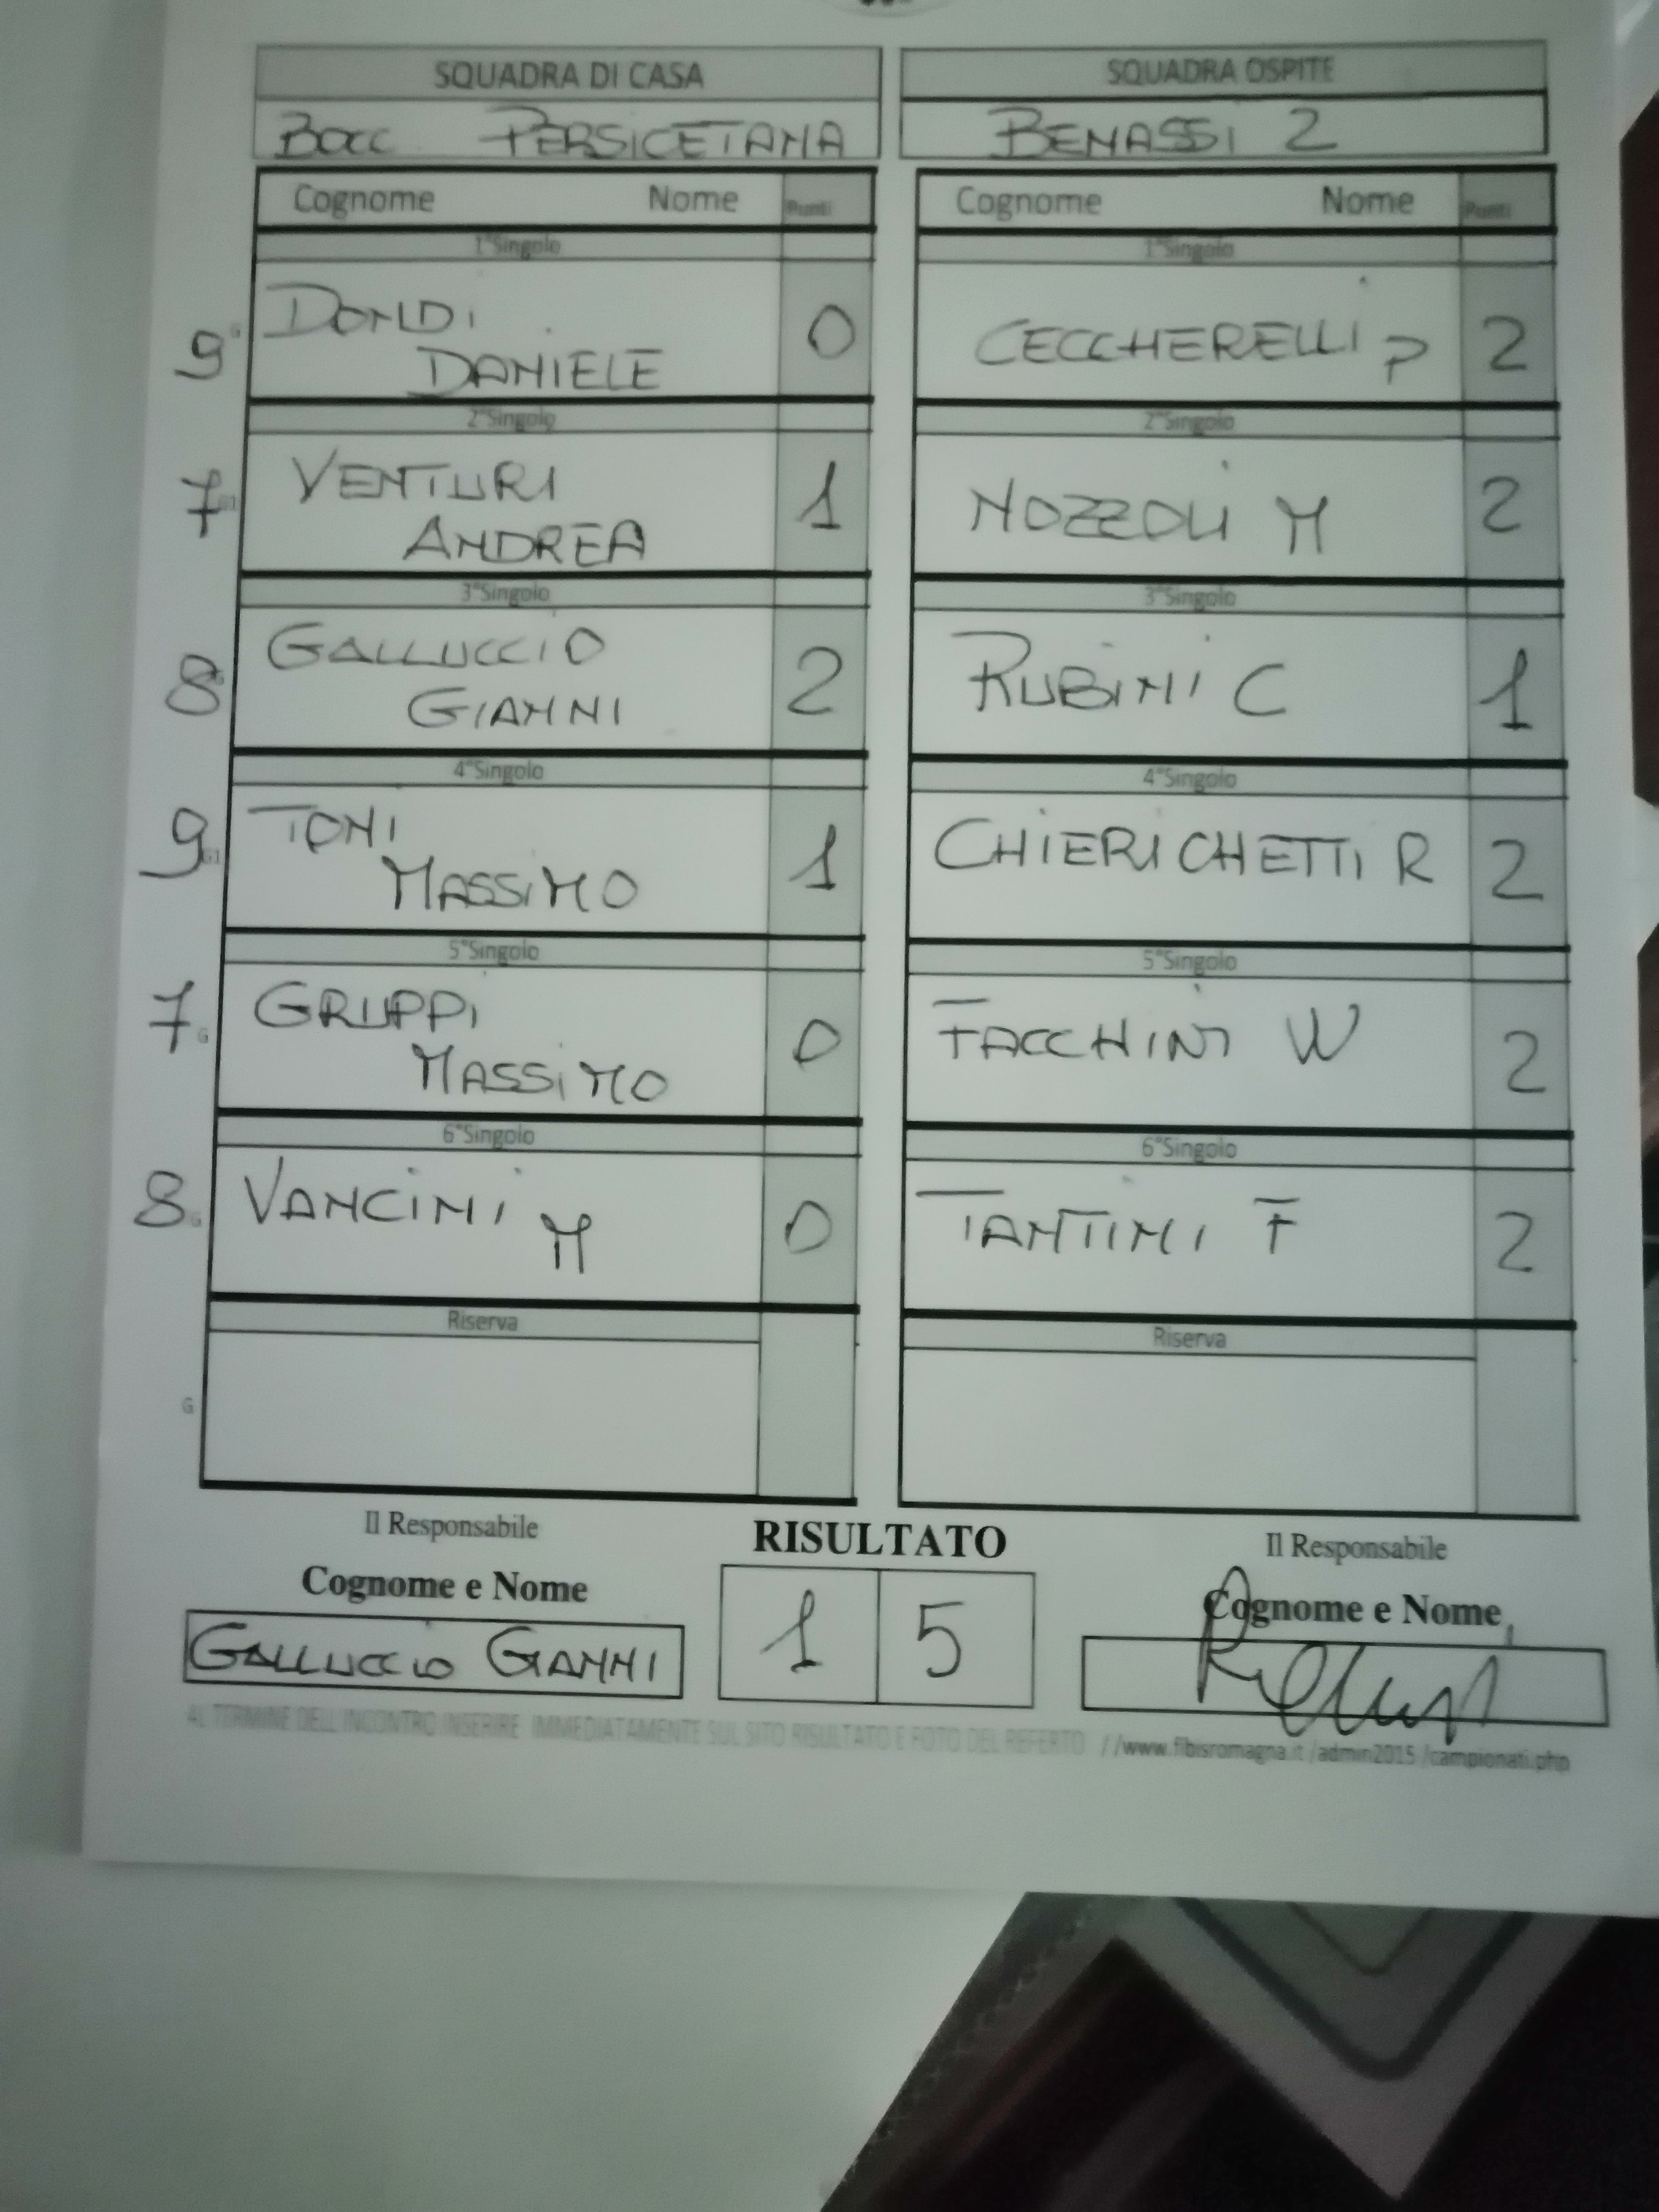 SQUADRA DI CASA
BOCC PERSICETANA
Cognome Nome Punti
1°Singolo
9 G DONDI
DANIELE 0
2°Singolo
7 G1 VENTURI
ANDREA 1
3°Singolo
8 GALLUCCIO
GIANNI 2
4°Singolo
9 G1 TONI
MASSIMO 1
5°Singolo
7 G GRUPPI
MASSIMO 0
6°Singolo
8 G VANCINI M 0
Riserva
G
SQUADRA OSPITE
BENASSI 2
Cognome Nome Punti
1°Singolo
CECCHERELLI P 2
2°Singolo
NOZZOLI M 2
3°Singolo
RUBINI C 1
4°Singolo
CHIERICHETTI R 2
5°Singolo
FACCHINI W 2
6°Singolo
TANTINI F 2
Riserva
Il Responsabile
Cognome e Nome
GALLUCCIO GIANNI
RISULTATO
1 5
Il Responsabile
Cognome e Nome
AL TERMINE DELL'INCONTRO INSERIRE IMMEDIATAMENTE SUL SITO RISULTATO E FOTO DEL REFERTO //www.fibisromagna.it /admin2015 /campionati.php